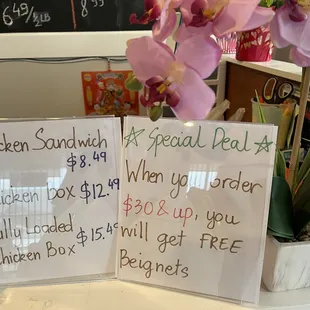 6.49/lb
8.99
cken Sandwich
$8.49
hicken box $12.49
ully Loaded
Chicken Box $15.49
☆ Special Deal ☆
When you order
$30 & up, you
will get FREE
Beignets